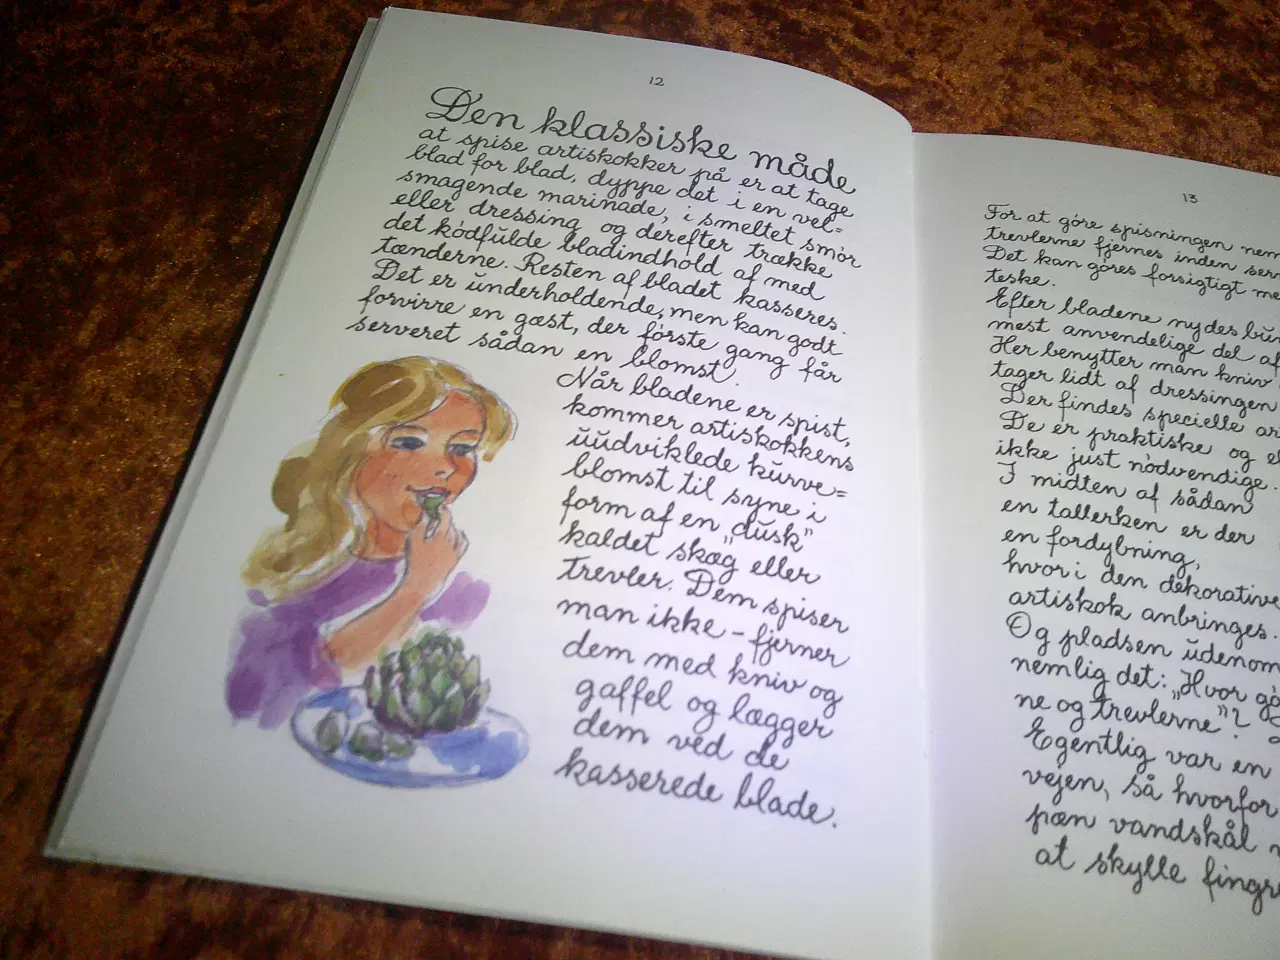 12
Den klassiske måde
at spise artiskokker på er at tage
blad for blad, dyppe det i en vel=
smagende marinade, i smeltet smör
eller dressing og derefter trække
det ködfulde bladindhold af med
tænderne. Resten af bladet kasseres.
Det er underholdende, men kan godt
forvirre en gæst, der förste gang får
serveret sådan en blomst.
Når bladene er spist,
kommer artiskokkens
uudviklede kurve=
blomst til syne i
form af en „dusk"
kaldet skæg eller
trevler. Dem spiser
man ikke - fjerner
dem med kniv og
gaffel og lægger
dem ved de
kasserede blade.
13
For at göre spisningen nem
trevlerne fjernes inden serv
Det kan göres forsigtigt me
teske.
Efter bladene nydes bun
mest anvendelige del af
Her benytter man kniv
tager lidt af dressingen
Der findes specielle ar
De er praktiske og el
ikke just nödvendige.
I midten af sådan
en tallerken er der
en fordybning,
hvor i den dekorative
artiskok anbringes.
Og pladsen udenom
nemlig det: „Hvor gö
ne og trevlerne"?
Egentlig var en
vejen, så hvorfor
pæn vandskål
at skylle fingre